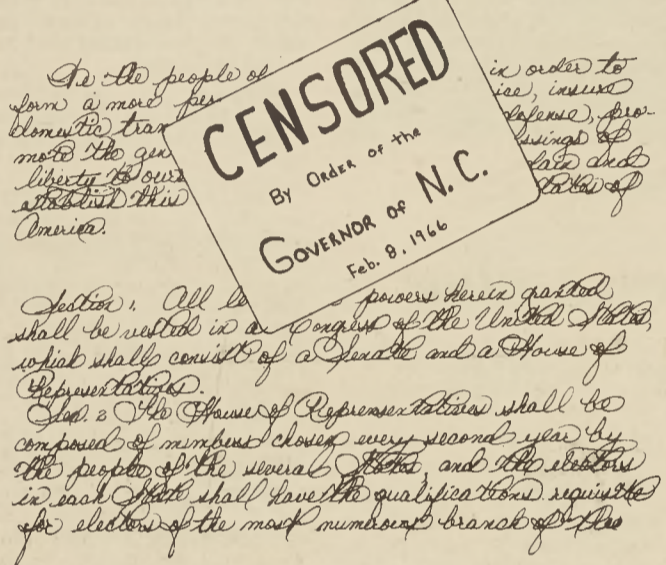 We the people of in order to
form a more per ice, insure
domestic tran defense, pro-
mote the gen ssings of
liberty to ours dain and
establish this tates of
America.
CENSORED
By Order of the
Governor of N.C.
Feb. 8, 1966
Section 1. All le powers herein granted
shall be vested in a Congress of the United States,
which shall consist of a Senate and a House of
Representatives.
Sec. 2 The House of Reprensentatives shall be
composed of members chosen every second year by
the people of the several States, and the electors
in each State shall have the qualifications requisite
for electors of the most numerous branch of the